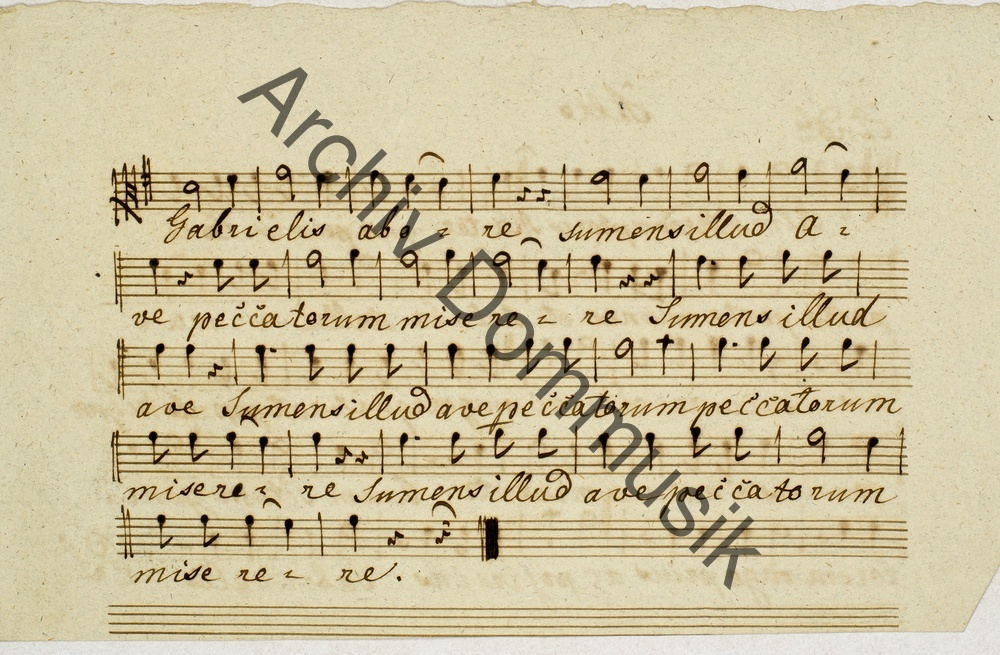 Gabrielis abo = re sumens illud A =
ve peččatorum mise re = re Sumens illud
ave Sumens illud ave peččatorum peččatorum
misere = re Sumens illud ave peččatorum
mise re = re.
Archiv Dommusik